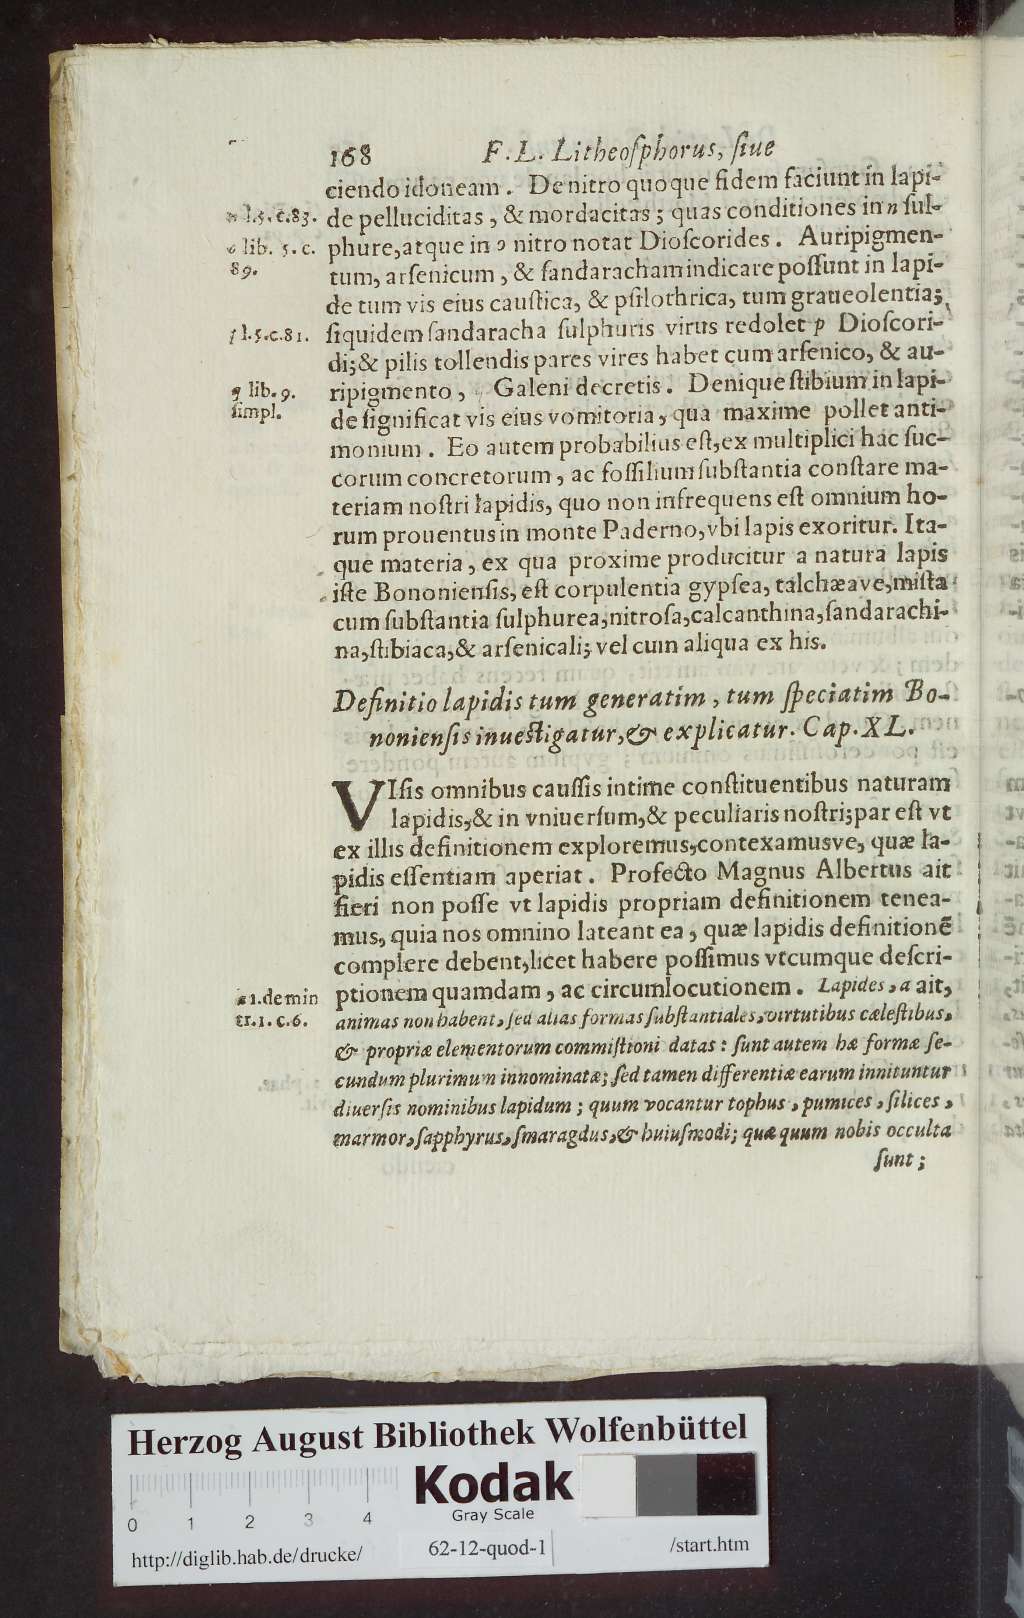 168 F. L. Litheoſphorus, ſiue
ciendo idoneam. De nitro quoque fidem faciunt in lapi-
n l.5.c.83. de pelluciditas, & mordacitas; quas conditiones in n ſul-
o lib. 5. c. phure, atque in o nitro notat Dioſcorides. Auripigmen-
89. tum, arſenicum, & ſandaracham indicare poſſunt in lapi-
de tum vis eius cauſtica, & pſilothrica, tum graueolentia;
p l.5.c.81. ſiquidem ſandaracha ſulphuris virus redolet p Dioſcori-
di; & pilis tollendis pares vires habet cum arſenico, & au-
q lib. 9. ripigmento, Galeni decretis. Denique ſtibium in lapi-
ſimpl. de ſignificat vis eius vomitoria, qua maxime pollet anti-
monium. Eo autem probabilius eſt, ex multiplici hac ſuc-
corum concretorum, ac foſſilium ſubſtantia conſtare ma-
teriam noſtri lapidis, quo non infrequens eſt omnium ho-
rum prouentus in monte Paderno, vbi lapis exoritur. Ita-
que materia, ex qua proxime producitur a natura lapis
iſte Bononienſis, eſt corpulentia gypſea, talchæave, miſta
cum ſubſtantia ſulphurea, nitroſa, calcanthina, ſandarachi-
na, ſtibiaca, & arſenicali; vel cum aliqua ex his.
Definitio lapidis tum generatim, tum ſpeciatim Bo-
nonienſis inueſtigatur, & explicatur. Cap. XL.
VIſis omnibus cauſſis intime conſtituentibus naturam
lapidis, & in vniuerſum, & peculiaris noſtri; par eſt vt
ex illis definitionem exploremus, contexamusve, quæ la-
pidis eſſentiam aperiat. Profecto Magnus Albertus ait
fieri non poſſe vt lapidis propriam definitionem tenea-
mus, quia nos omnino lateant ea, quæ lapidis definitionē
complere debent, licet habere poſſimus vtcumque deſcri-
a 1. de min ptionem quamdam, ac circumlocutionem. Lapides, a ait,
tr. 1. c. 6. animas non habent, ſed alias formas ſubſtantiales, virtutibus cæleſtibus,
& propriæ elementorum commiſtioni datas: ſunt autem hæ formæ ſe-
cundum plurimum innominatæ; ſed tamen differentiæ earum innituntur
diuerſis nominibus lapidum; quum vocantur tophus, pumices, ſilices,
marmor, ſapphyrus, ſmaragdus, & huiuſmodi; quæ quum nobis occulta
ſunt;
Herzog August Bibliothek Wolfenbüttel
Kodak
Gray Scale
0 1 2 3 4
http://diglib.hab.de/drucke/ 62-12-quod-1 /start.htm